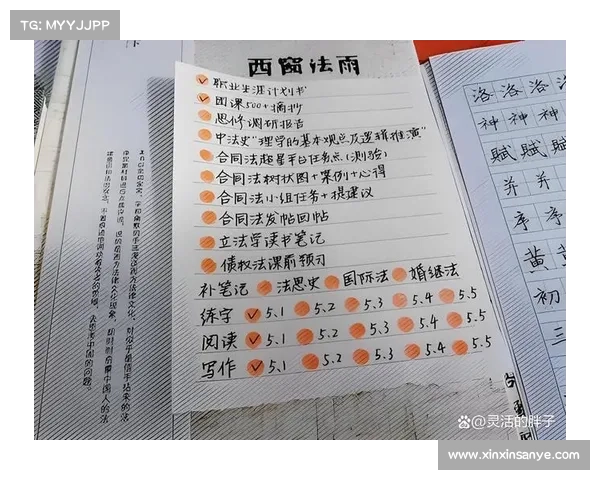 TG: MYYJJPP
西窗法雨
职业生涯计划书
团课500+摘抄
思修调研报告
中法史"理学的基本观点及逻辑推演"
合同法超星平台任务点(测验)
合同法树状图+案例+心得
合同法小组任务+提建议
合同法发帖回帖
立法学读书笔记
债权法课前预习
补笔记 法思史 国际法 婚继法
练字 5.1 5.2 5.3 5.4 5.5
阅读 5.1 5.2 5.3 5.4 5.5
写作 5.1 5.2 5.3 5.4 5.5
洛洛洛洛
神神神神
赋赋赋
并并并
序序序
黄黄
初
三
@灵活的胖子
www.xinxinsanye.com